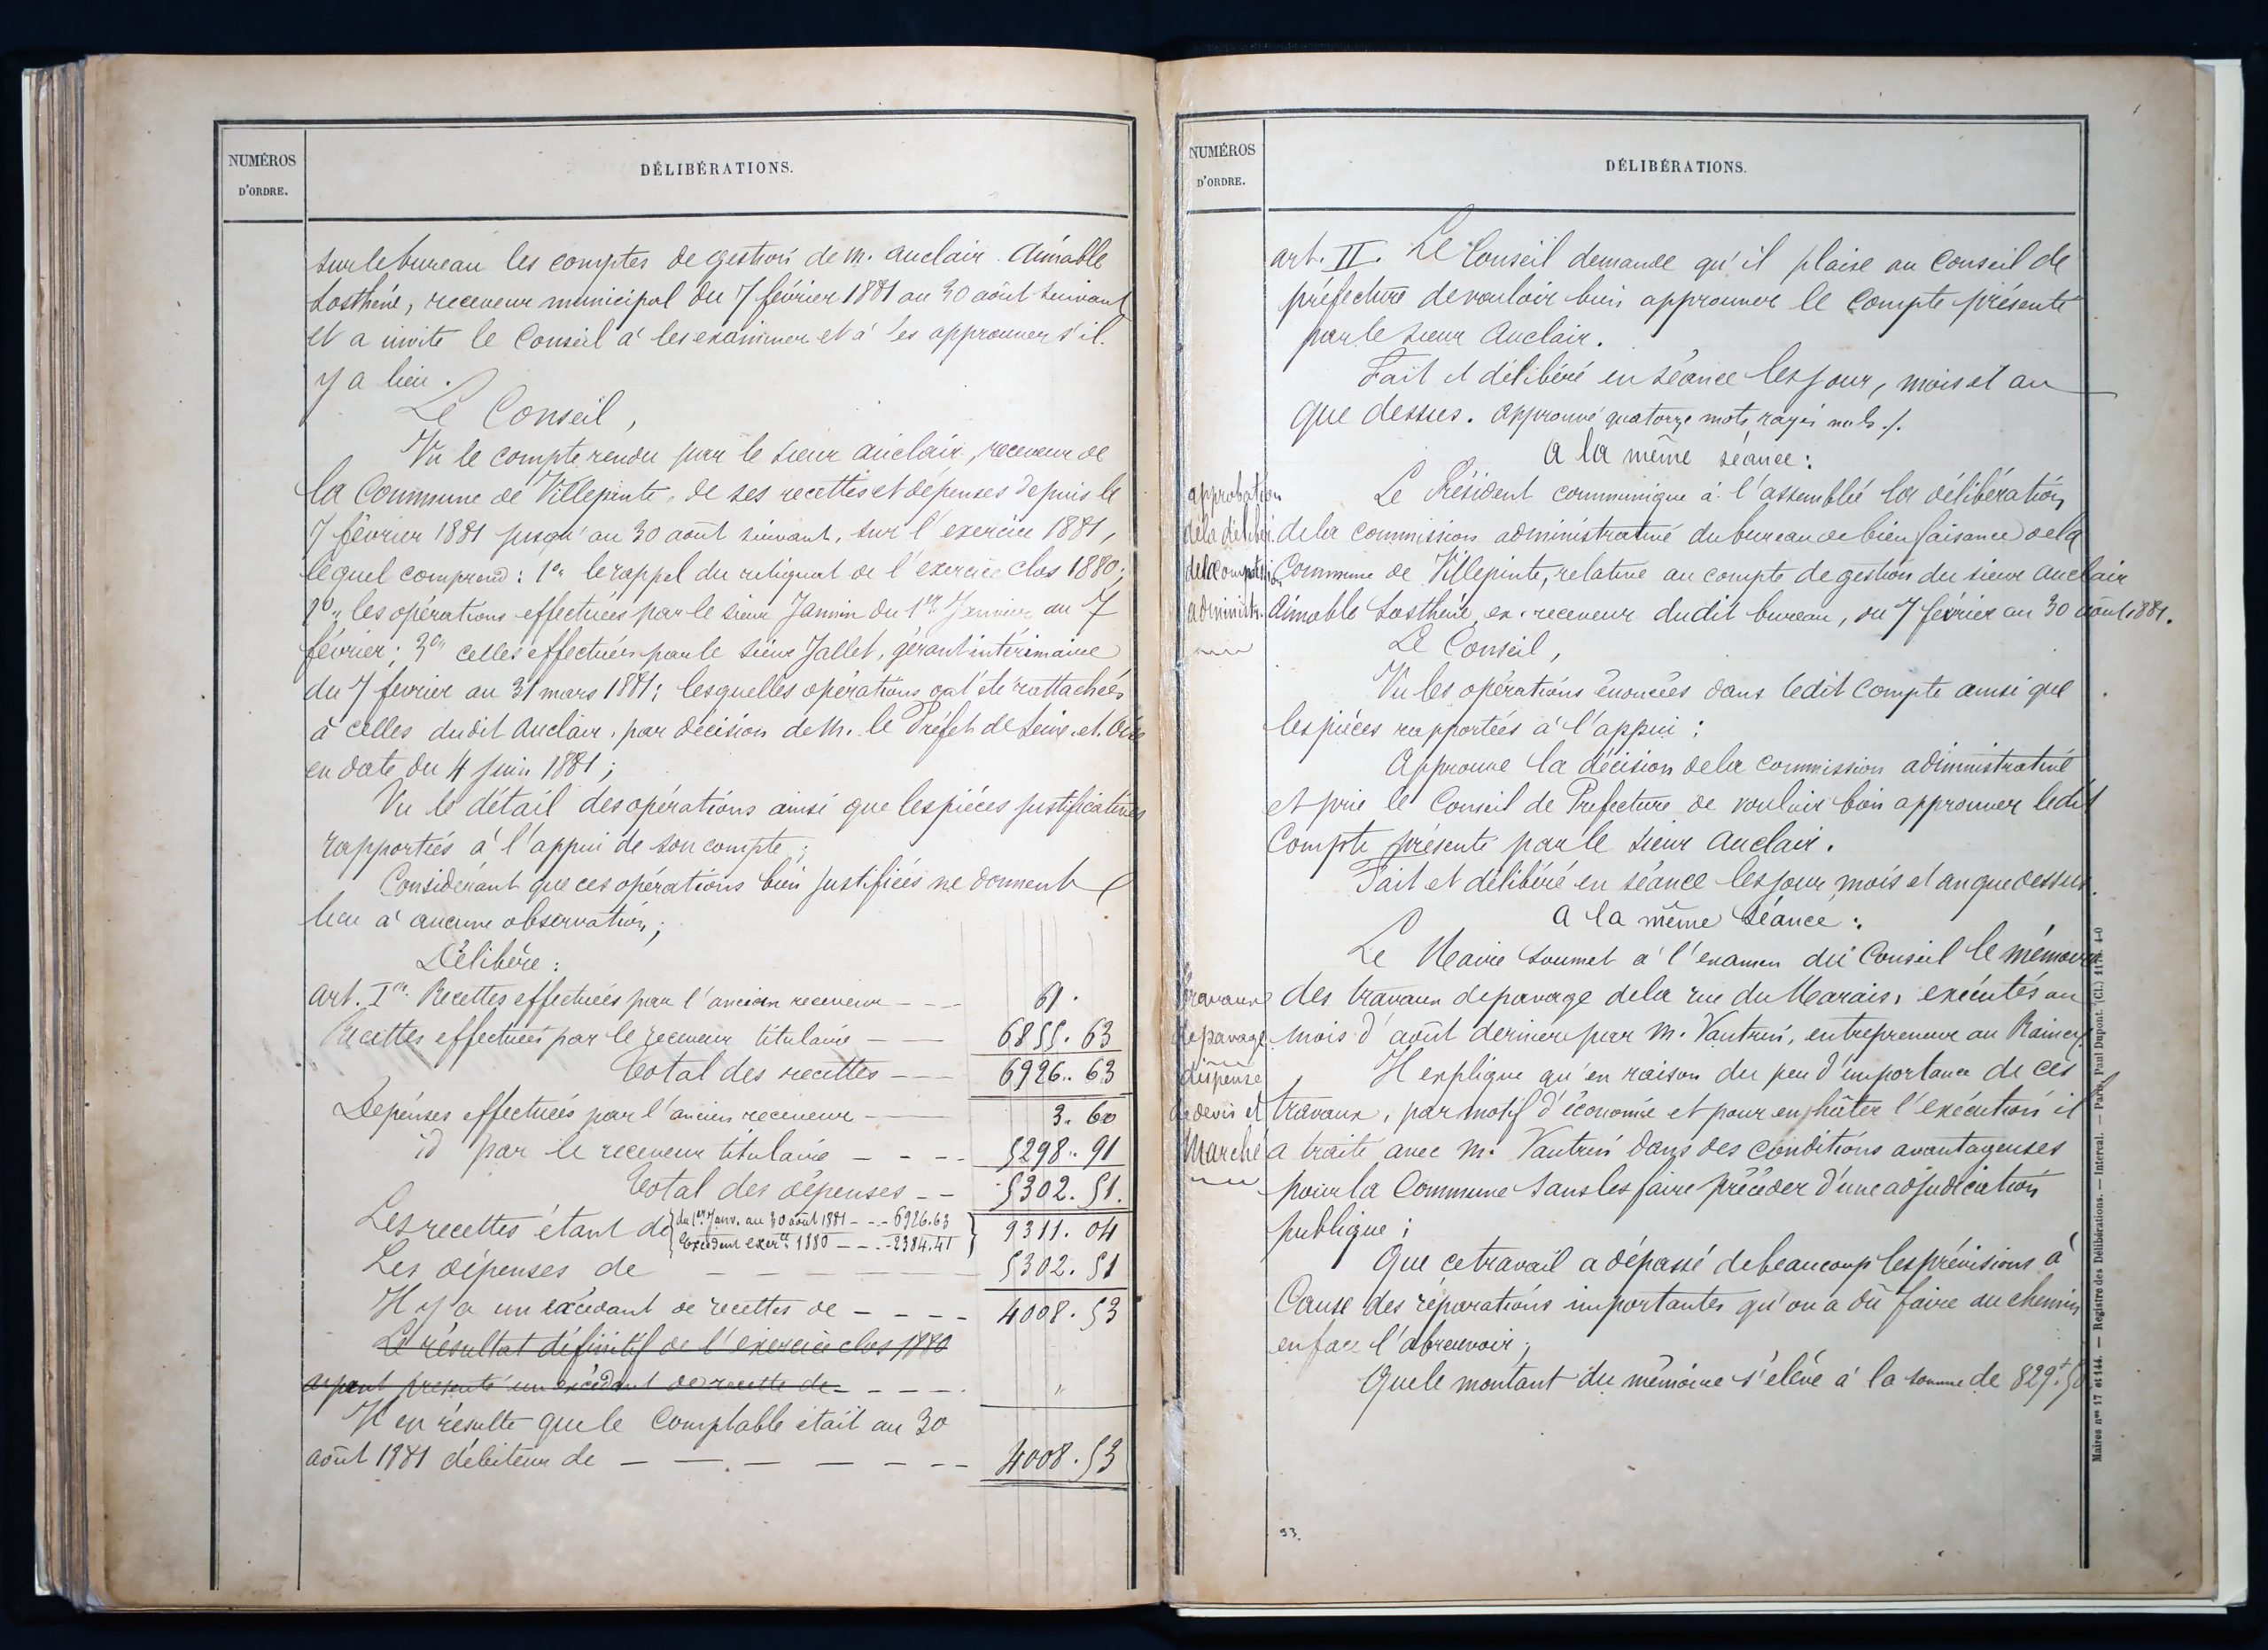 NUMÉROS
D'ORDRE.
DÉLIBÉRATIONS.
sur le bureau les comptes de gestion de M. Auclair Aimable
Losthène, receveur municipal du 7 février 1881 au 30 août suivant
et a invité le Conseil à les examiner et à les approuver s'il
y a lieu.
Le Conseil,
Vu le compte rendu par le sieur Auclair, receveur de
la Commune de Villepinte, de ses recettes et dépenses depuis le
7 février 1881 jusqu'au 30 août suivant, sur l'exercice 1881,
lequel comprend: 1o le rappel du reliquat de l'exercice clos 1880;
2o les opérations effectuées par le sieur Jannin du 1er Janvier au 7
février; 3o celles effectuées par le sieur Jallet, gérant intérimaire
du 7 février au 31 mars 1881; lesquelles opérations ont été rattachées
à celles dudit Auclair, par décision de M. le Préfet de Seine-et-Oise
en date du 4 juin 1881;
Vu le détail des opérations ainsi que les pièces justificatives
rapportées à l'appui de son compte;
Considérant que ces opérations bien justifiées ne donnent
lieu à aucune observation;
Délibère:
Art. Ier Recettes effectuées par l'ancien receveur - - - 61.
Recettes effectuées par le receveur titulaire - - 6855.63
Total des recettes - - 6926.63
Dépenses effectuées par l'ancien receveur - - 3.60
id par le receveur titulaire - - - - 5298.91
Total des dépenses - - 5302.51.
Les recettes étant de { du 1er Janv. au 30 août 1881 - - - 6926.63
Excédent exerce 1880 - - - 2384.41 } 9311.04
Les dépenses de - - - - 5302.51
Il y a un excédant de recettes de - - - - 4008.53
Le résultat définitif de l'exercice clos 1880
ayant présenté un excédent de recette de - - - - "
Il en résulte que le Comptable était au 30
août 1881 débiteur de - - - - - - - 4008.53
NUMÉROS
D'ORDRE.
DÉLIBÉRATIONS.
art. II. Le Conseil demande qu'il plaise au Conseil de
préfecture de vouloir bien approuver le compte présenté
par le sieur Auclair.
Fait et délibéré en séance les jour, mois et an
que dessus. Approuvé quatorze mots rayés nuls ./.
A la même séance:
approbation
de la délibér.
de la
administr.
Le Président communique à l'assemblée la délibération
de la commission administrative du bureau de bienfaisance de la
Commune de Villepinte, relative au compte de gestion du sieur Auclair
Aimable Losthène, ex-receveur dudit bureau, du 7 février au 30 août 1881.
Le Conseil,
Vu les opérations énoncées dans ledit compte ainsi que
les pièces rapportées à l'appui:
Approuve la décision de la commission administrative
et prie le Conseil de Préfecture de vouloir bien approuver ledit
Compte présenté par le sieur Auclair.
Fait et délibéré en séance les jour, mois et an que dessus.
A la même séance:
Travaux
de pavage
dispense
de devis et
Marché
Le Maire soumet à l'examen du Conseil le mémoire
des travaux de pavage de la rue du Marais, exécutés au
mois d'août dernier par M. Vautrin, entrepreneur au Raincy.
Il explique qu'en raison du peu d'importance de ces
travaux, par motif d'économie et pour en hâter l'exécution il
a traité avec M. Vautrin dans des conditions avantageuses
pour la Commune sans les faire précéder d'une adjudication
publique;
Que ce travail a dépassé de beaucoup les prévisions à
Cause des réparations importantes qu'on a dû faire au chemin
en face l'abreuvoir;
Que le montant du mémoire s'élève à la somme de 829f.50
93.
Maires nos 17 et 144. — Registre des Délibérations. — Intercal. — Paris, Paul Dupont. (Cl.) 1178. 4-0